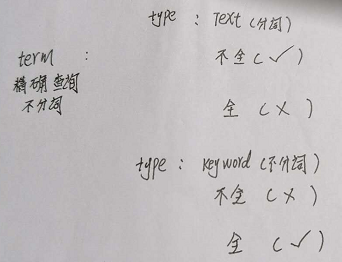 type : Text (分词)
term :
不全 (✓)
精确查询
不分词
全 (×)
type : keyword (不分词)
不全 (×)
全 (✓)